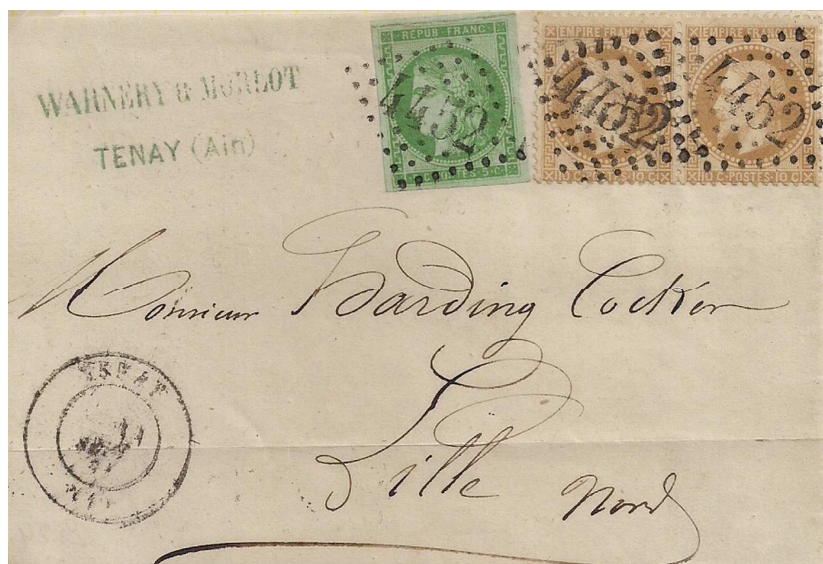 WARNERY & MORLOT
TENAY (Ain)
REPUB FRANC
4452
EMPIRE FRANC
4452
10 C·POSTES·10 C
4452
10 C·POSTES·10 C
Monsieur Harding Cocker
Lille Nord
TENAY